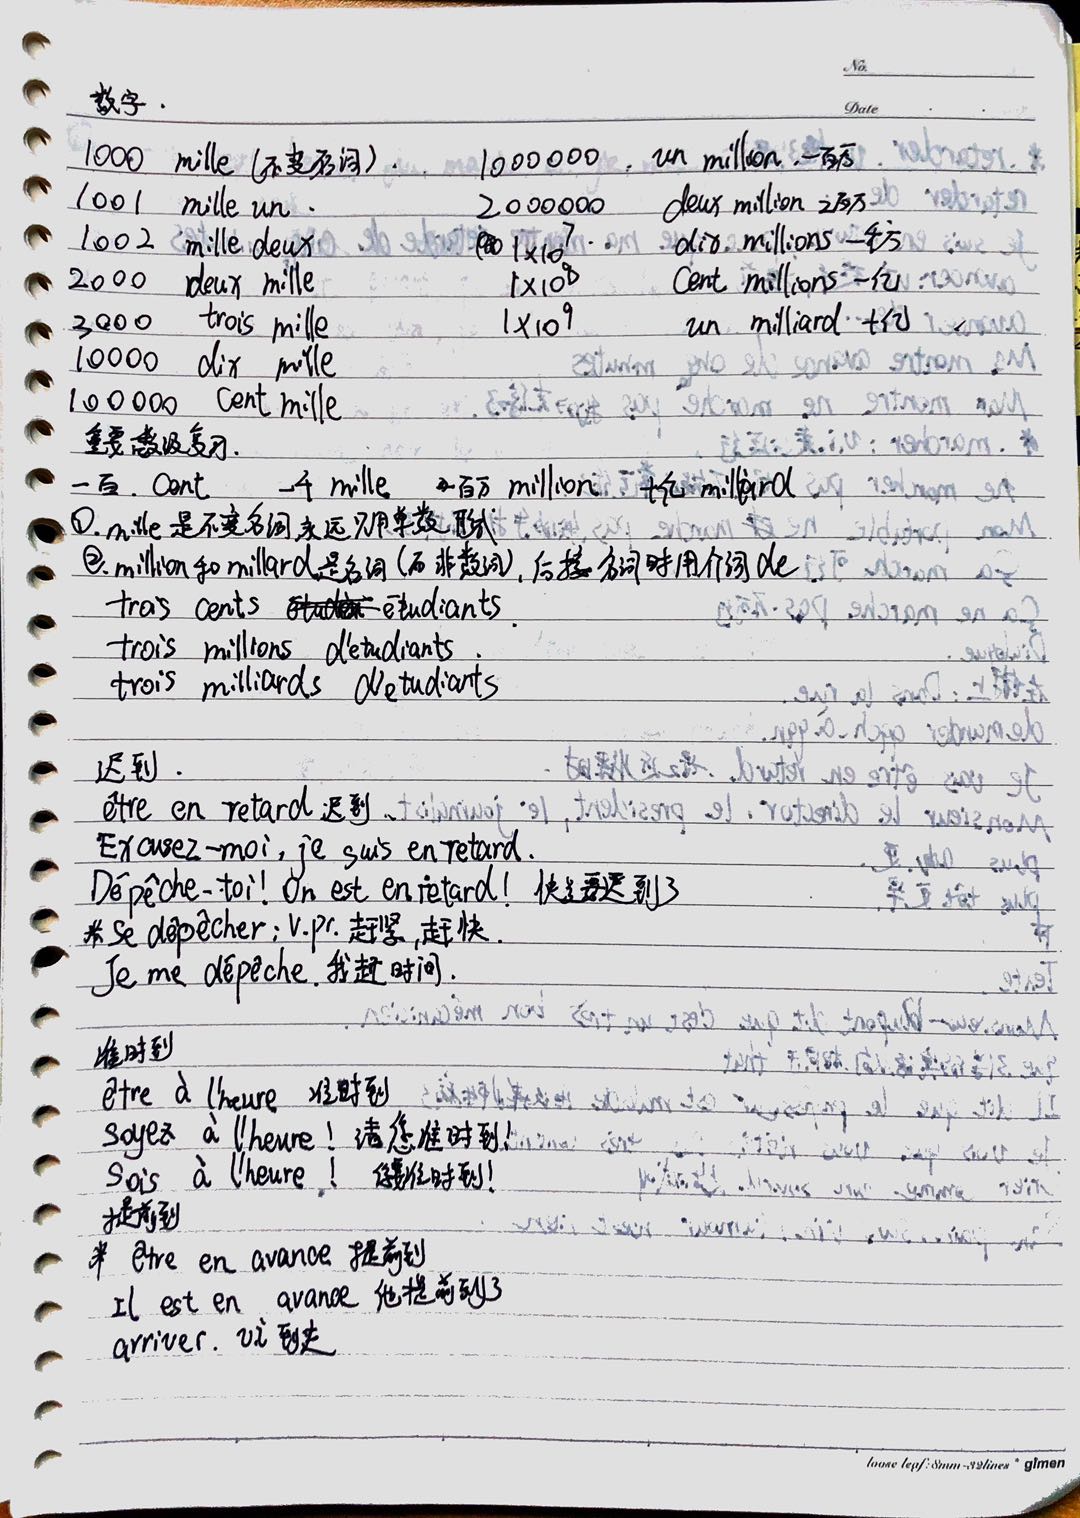 No.
Date
数字.
1000 mille (不变名词). 1000000. un million 一百万
1001 mille un. 2000000 deux million 二百万
1002 mille deux 1×10^7. dix millions 一千万
2000 deux mille 1×10^8 Cent millions 一亿
3000 trois mille 1×10^9 un milliard 十亿
10000 dix mille
100000 Cent mille
重要数级复习.
一百. Cent 一千 mille 一百万 million 十亿 milliard
①. mille 是不变名词,永远只用单数形式
②. million和millard是名词(而非数词), 后接名词时用介词de
trois cents étudiants.
trois millions d'etudiants.
trois milliards d'etudiants
迟到.
être en retard 迟到
Excusez-moi, je suis en retard.
Dépêche-toi! On est en retard! 快点要迟到了
* Se dépêcher; v.pr. 赶紧,赶快.
Je me dépêche. 我赶时间.
准时到
être à l'heure 准时到
Soyez à l'heure! 请您准时到!
Sois à l'heure! 准时到!
提前到
* être en avance 提前到
Il est en avance 他提前到了
arriver. vi 到达
loose leaf: 8mm-32lines * glmen